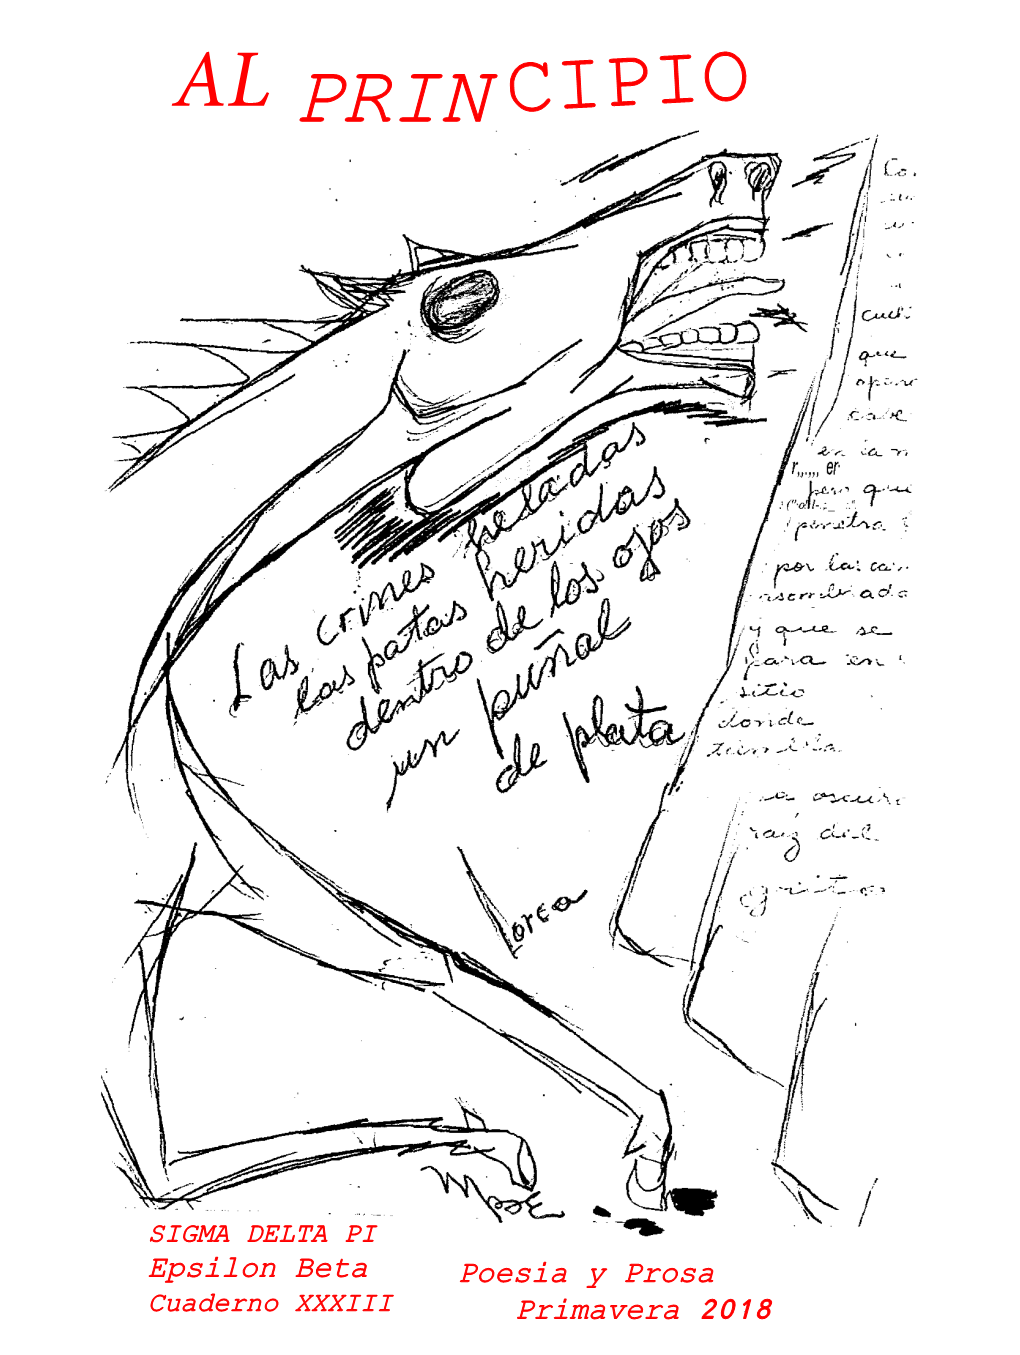 AL PRINCIPIO
Las crines heladas
las patas heridas
dentro de los ojos
un puñal
de plata
Lorca
que
en la
pero que
penetra
por las
y que se
para en
sitio
donde
tiembla
oscura
raíz del
grito
SIGMA DELTA PI
Epsilon Beta
Cuaderno XXXIII
Poesia y Prosa
Primavera 2018